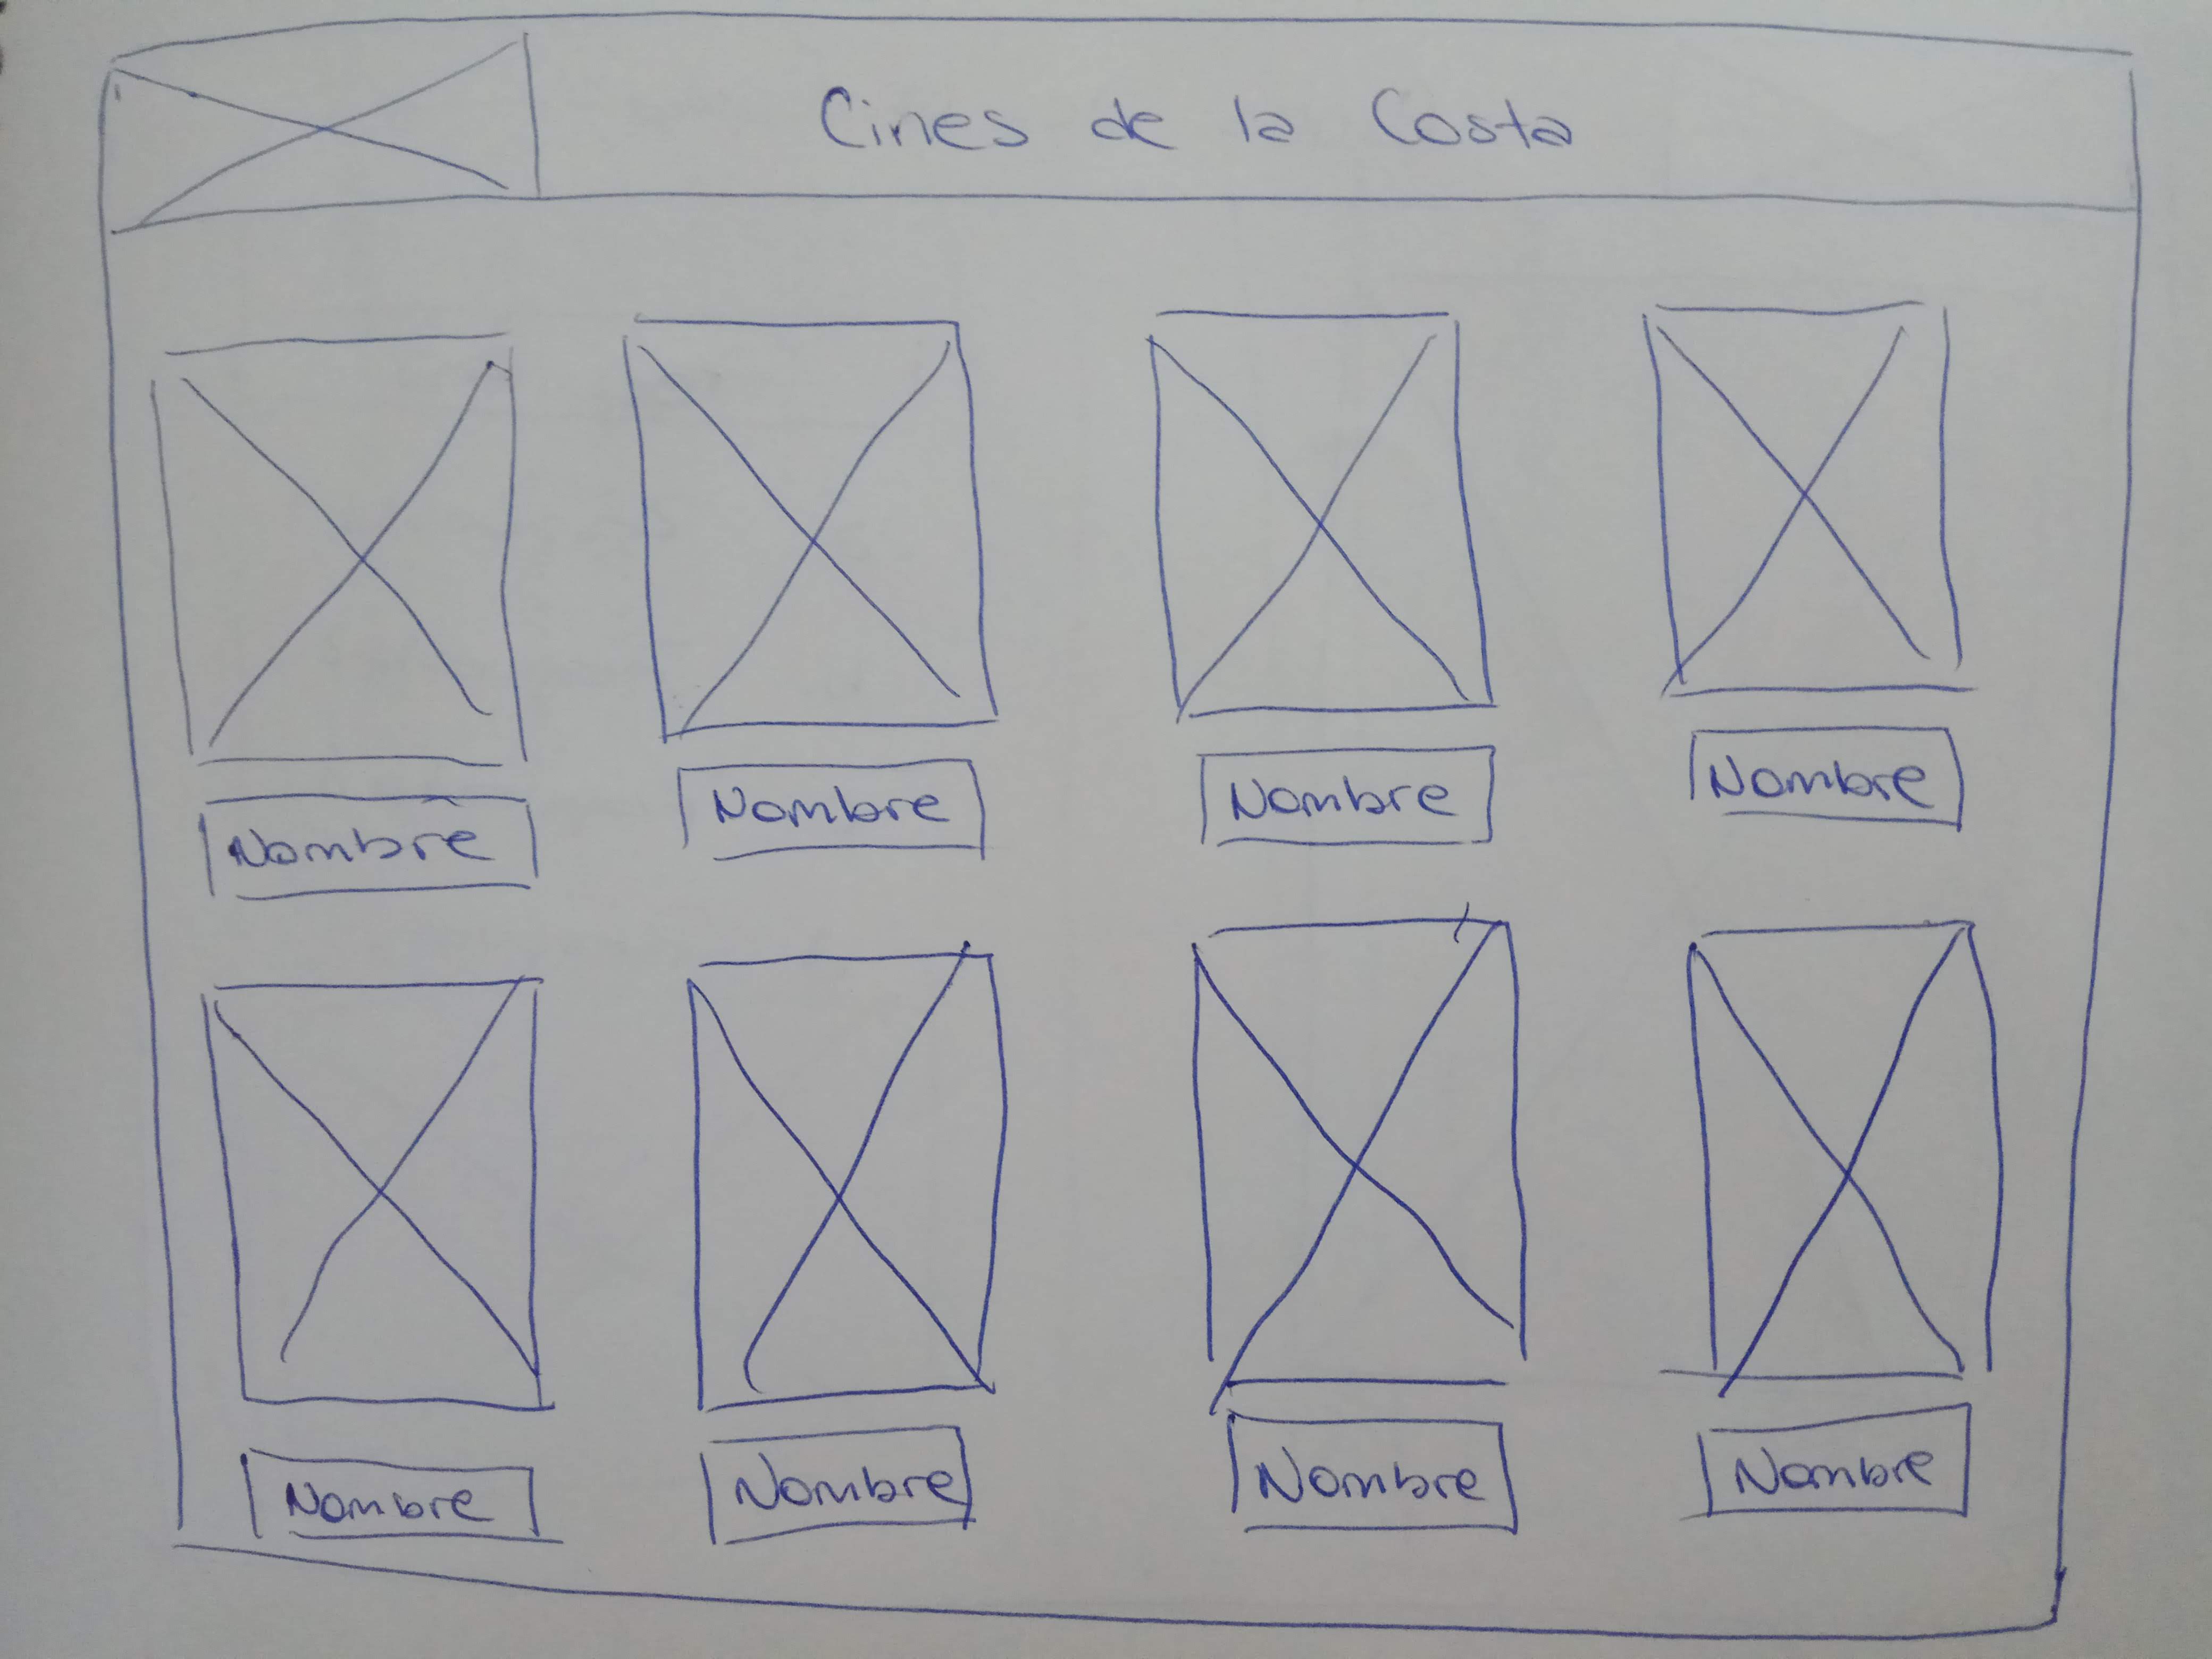 Cines de la Costa
Nombre
Nombre
Nombre
Nombre
Nombre
Nombre
Nombre
Nombre